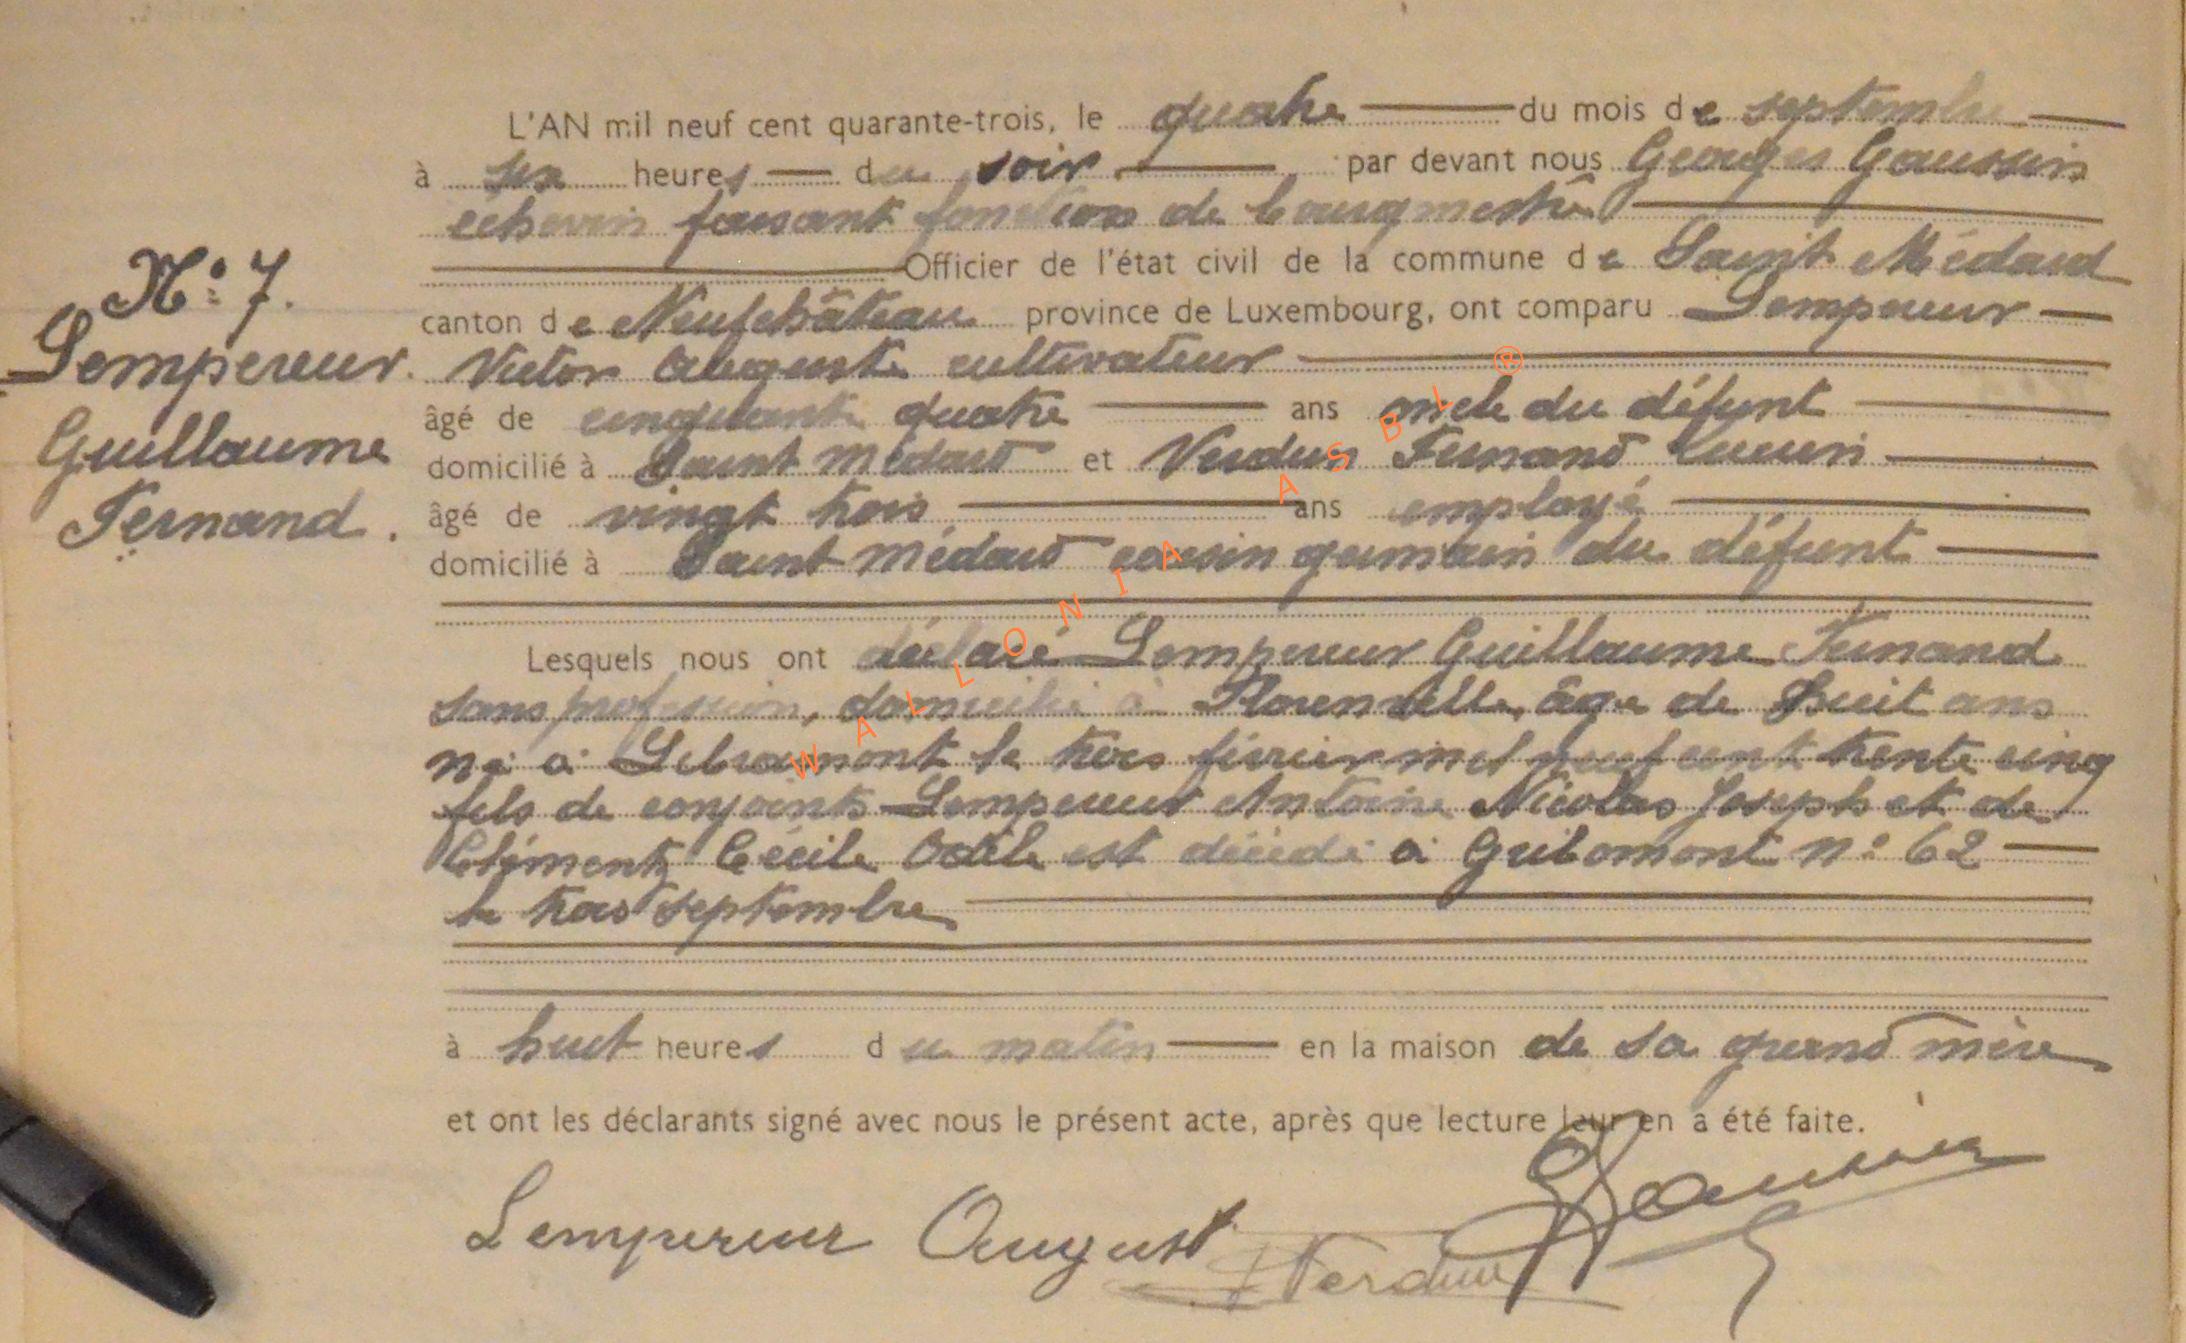 L'AN mil neuf cent quarante-trois, le quatre du mois de septembre
à six heures du soir par devant nous Georges Goussin
échevin faisant fonction de bourgmestre
Officier de l'état civil de la commune de Saint Médard
N° 7.
canton de Neufchâteau province de Luxembourg, ont comparu Lempereur
Lempereur.
Victor Auguste cultivateur
âgé de cinquante quatre ans oncle du défunt
Guillaume
domicilié à Saint Médard et Verdun Fernand Lucien
âgé de vingt trois ans employé
Fernand.
domicilié à Saint Médard cousin germain du défunt
Lesquels nous ont déclaré Lempereur Guillaume Fernand
sans profession, domicilié à Florenville, âgé de huit ans
né à Libramont le trois février mil neuf cent trente cinq
fils de conjoints Lempereur Antoine Nicolas Joseph et de
Clément Cécile Odile est décédé à Gribomont n° 62
le trois septembre
à huit heures du matin en la maison de sa grand mère
et ont les déclarants signé avec nous le présent acte, après que lecture leur en a été faite.
Lempereur August
Verdun
WALLONIA ASBL ®